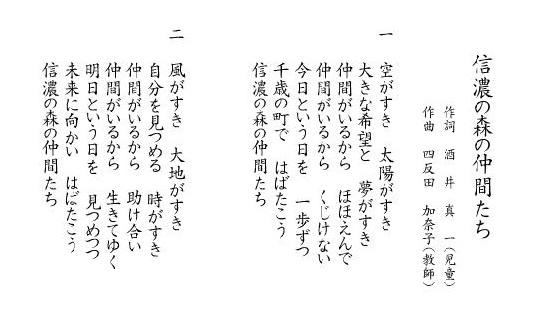 信濃の森の仲間たち
作詞 酒井 真一(児童)
作曲 四反田 加奈子(教師)
一
空がすき 太陽がすき
大きな希望と 夢がすき
仲間がいるから ほほえんで
仲間がいるから くじけない
今日という日を 一歩ずつ
千歳の町で はばたこう
信濃の森の仲間たち
二
風がすき 大地がすき
自分を見つめる 時がすき
仲間がいるから 助け合い
仲間がいるから 生きてゆく
明日という日を 見つめつつ
未来に向かい はばたこう
信濃の森の仲間たち